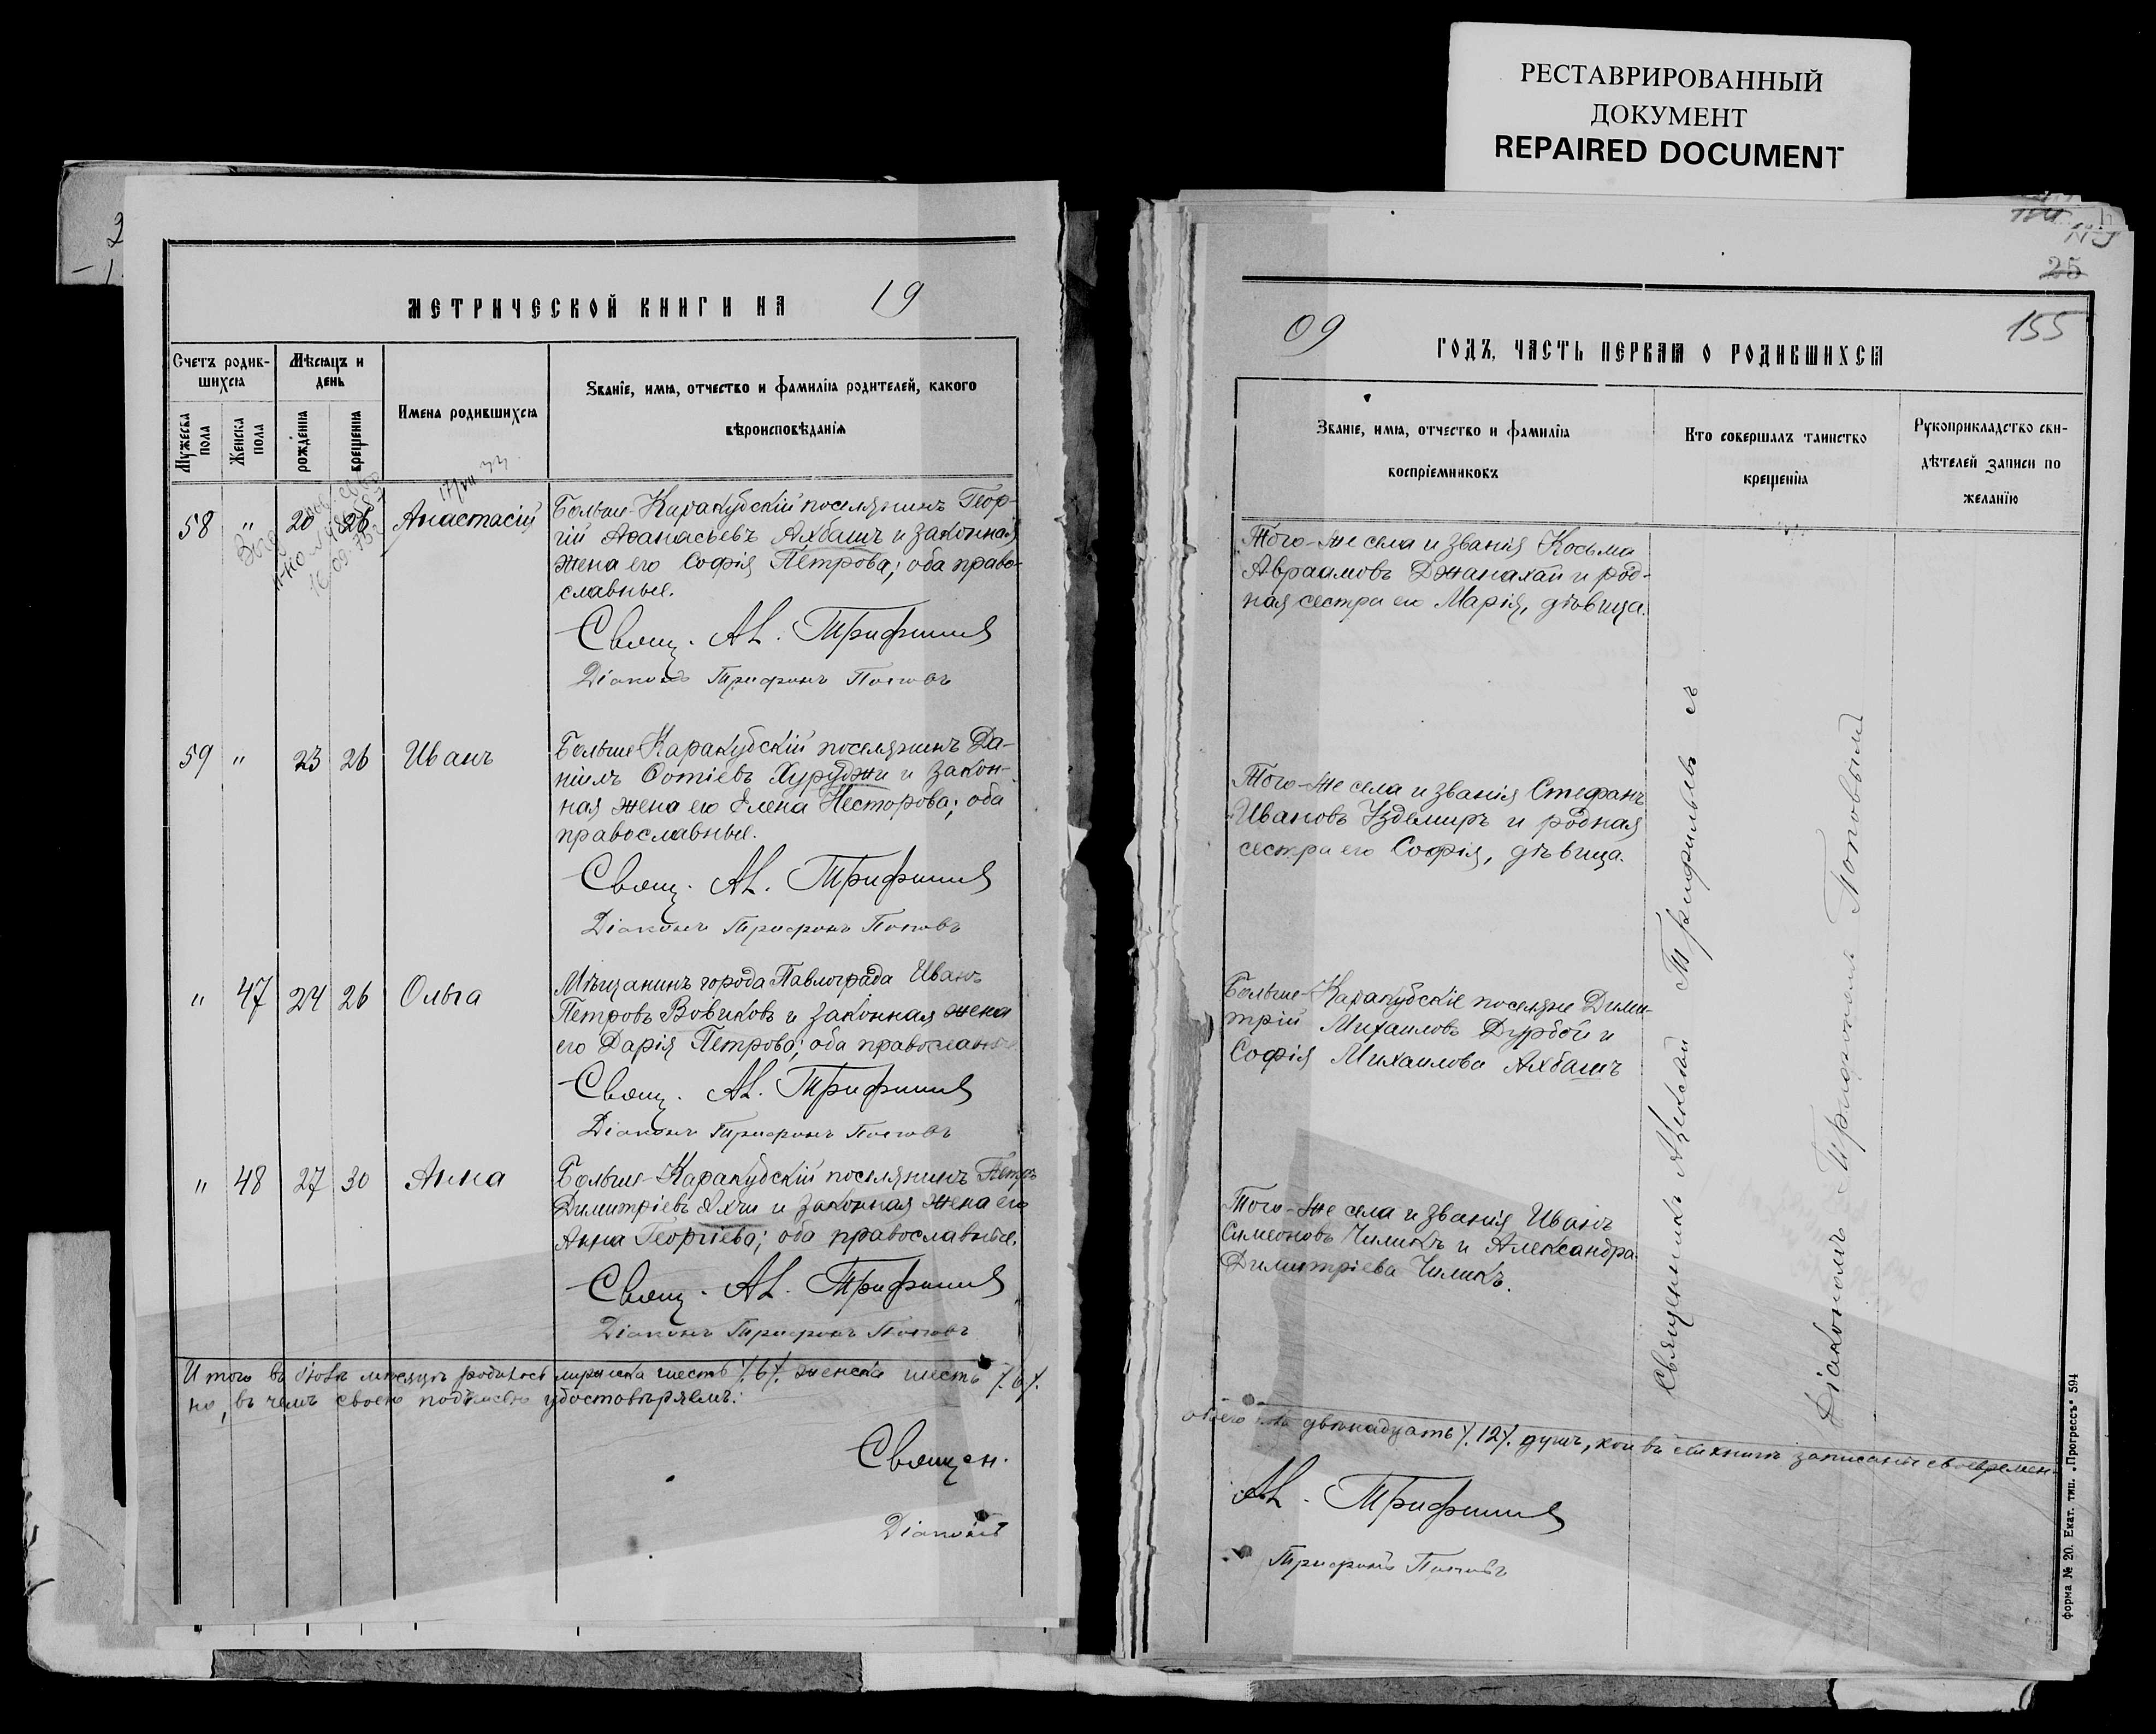 РЕСТАВРИРОВАННЫЙ
ДОКУМЕНТ
REPAIRED DOCUMENT
МЕТРИЧЕСКОЙ КНИГИ НА 19
Счетъ родив-
шихся
Мѣсяцъ и
день
Имена родившихся
Званіе, имя, отчество и фамилія родителей, какого
вѣроисповѣданія
Мужеска пола
Женска пола
рожденія
крещенія
58 " 20 26 Анастасій
Больше-Каракубскій поселянинъ Геор-
гій Аѳанасьевъ Ахбашъ и законная
жена его Софія Петрова; оба право-
славные.
Свящ. Ал. Трифильев
Діаконъ Трифонъ Поповъ
59 " 23 26 Иванъ
Больше-Каракубскій поселянинъ Да-
ніилъ Ѳотіевъ Хуруджи и закон-
ная жена его Елена Несторова; оба
православные.
Свящ. Ал. Трифильев
Діаконъ Трифонъ Поповъ
" 47 24 26 Ольга
Мѣщанинъ города Павлограда Иванъ
Петровъ Вовиковъ и законная жена
его Дарія Петрова; оба православные
Свящ. Ал. Трифильев
Діаконъ Трифонъ Поповъ
" 48 27 30 Анна
Больше-Каракубскій поселянинъ Петръ
Димитріевъ Яхчи и законная жена его
Анна Георгіева; оба православные.
Свящ. Ал. Трифильев
Діаконъ Трифонъ Поповъ
Итого въ мѣсяцѣ родилось мужеска шесть /.6/. женска шесть /.6/.
но, въ чемъ своею подписью удостовѣряемъ:
Священ.
Діаконъ
25
155
09 ГОДЪ, ЧАСТЬ ПЕРВАЯ О РОДИВШИХСЯ
Званіе, имя, отчество и фамилія
воспріемниковъ
Кто совершалъ таинство
крещенія
Рукоприкладство сви-
дѣтелей записи по
желанію
Того-же села и званія Косьма
Авраамовъ Джанахаи и род-
ная сестра его Марія, дѣвица.
Того-же села и званія Стефанъ
Ивановъ Уздемиръ и родная
сестра его Софія, дѣвица.
Больше-Каракубскіе поселяне Дими-
трій Михаиловъ Дурбой и
Софія Михаилова Ахбашъ
Того-же села и званія Иванъ
Симеоновъ Чиликъ и Александра
Димитріева Чиликъ.
Священникъ Алексѣй Трифильевъ съ
Діакономъ Трифономъ Поповымъ
обоего пола двѣнадцать /.12/. душъ, кои въ сей книгѣ записаны своевремен-
Ал. Трифильев
Трифонъ Поповъ
форма № 20. Екат. тип. „Прогрессъ“ 594